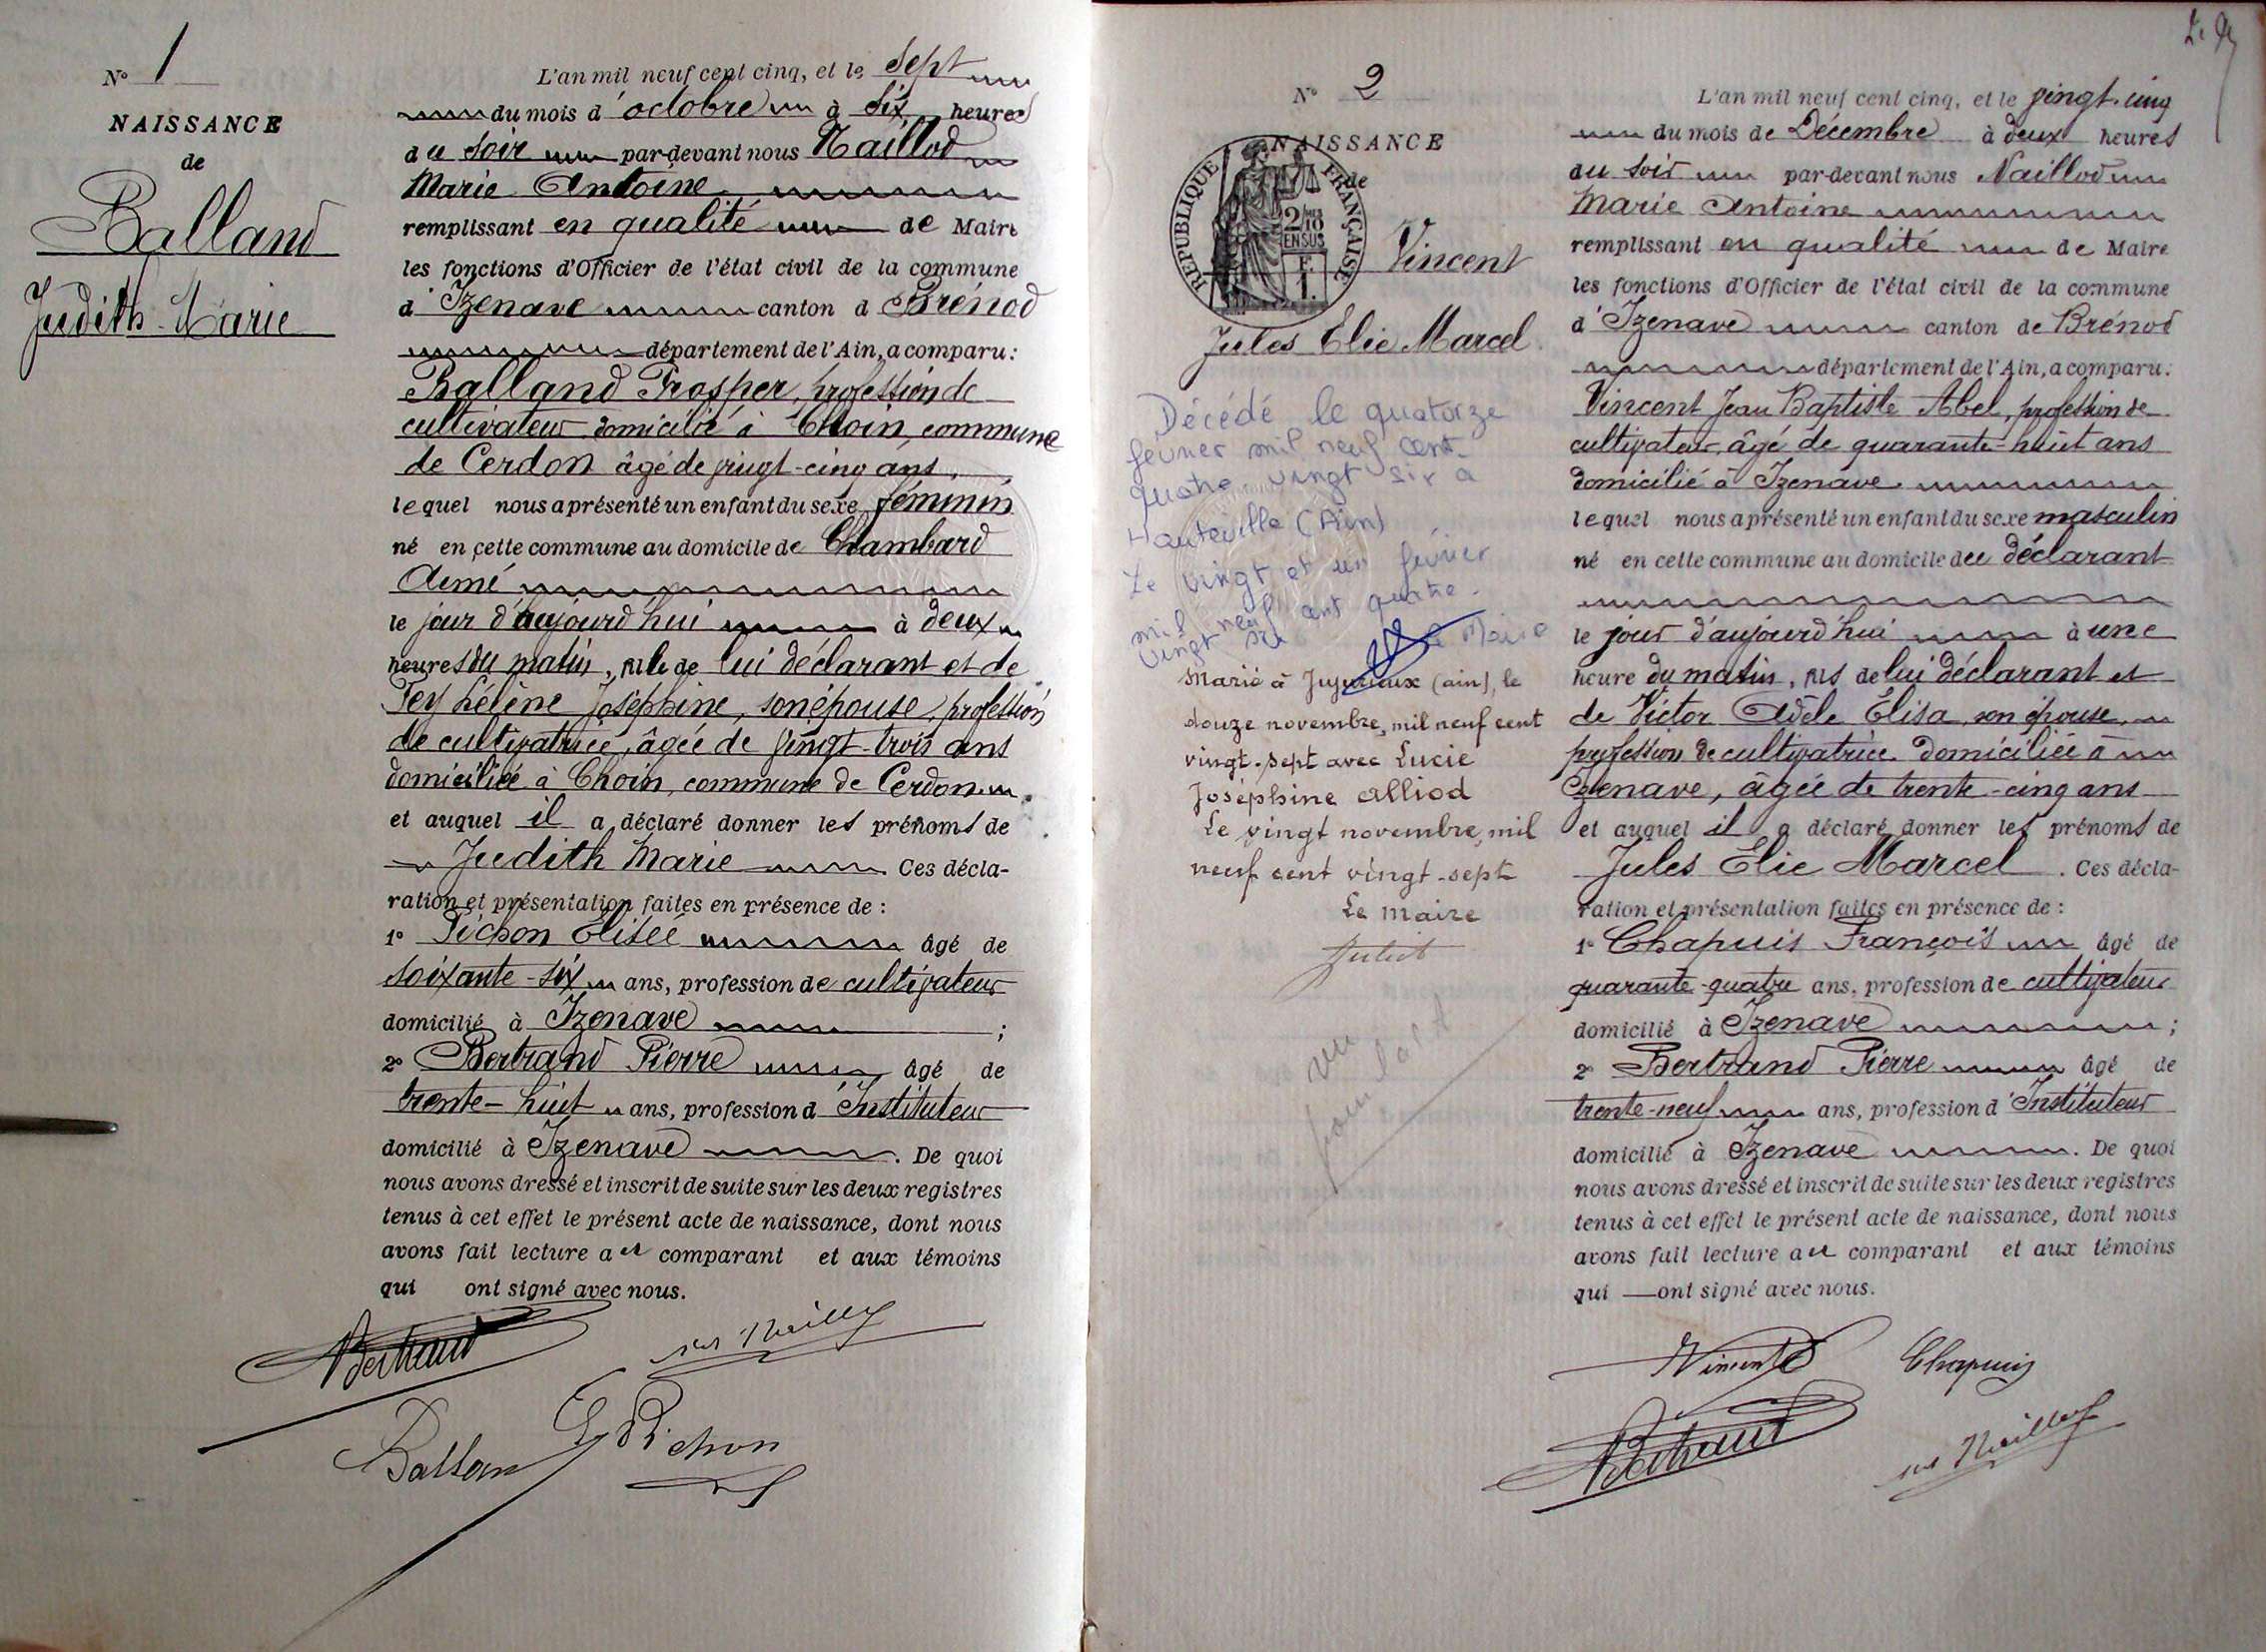 N° 1
NAISSANCE
de
Balland
Judith Marie
L'an mil neuf cent cinq, et le sept
du mois d'octobre à six heures
du soir par-devant nous Naillod
Marie Antoine
remplissant en qualité de Maire
les fonctions d'Officier de l'état civil de la commune
d'Izenave canton de Brénod
département de l'Ain, a comparu:
Balland Prosper, profession de
cultivateur domicilié à Choin, commune
de Cerdon âgé de vingt-cinq ans,
lequel nous a présenté un enfant du sexe féminin
né en cette commune au domicile de Chambard
Aimé
le jour d'aujourd'hui à deux
heures du matin, fille de lui déclarant et de
Fey Hélène Joséphine, son épouse, profession
de cultivatrice, âgée de vingt-trois ans
domiciliée à Choin, commune de Cerdon
et auquel il a déclaré donner les prénoms de
Judith Marie Ces décla-
ration et présentation faites en présence de :
1° Pichon Élisée âgé de
soixante-six ans, profession de cultivateur
domicilié à Izenave ;
2° Bertrand Pierre âgé de
trente-huit ans, profession d'Instituteur
domicilié à Izenave . De quoi
nous avons dressé et inscrit de suite sur les deux registres
tenus à cet effet le présent acte de naissance, dont nous
avons fait lecture au comparant et aux témoins
qui ont signé avec nous.
Bertrand
Balland E Pichon
N° 2
NAISSANCE
de
REPUBLIQUE FRANÇAISE
2/10 EN SUS
Vincent
Jules Elie Marcel
Décédé le quatorze
février mil neuf cent
quatre vingt six à
Hauteville (Ain)
Le vingt et un février
mil neuf cent quatre
vingt six
Le Maire
Marié à Jujurieux (ain), le
douze novembre, mil neuf cent
vingt-sept avec Lucie
Joséphine Alliod
Le vingt novembre, mil
neuf cent vingt-sept
Le maire
L'an mil neuf cent cinq, et le vingt-cinq
du mois de Décembre à deux heures
du soir par-devant nous Naillod
Marie Antoine
remplissant en qualité de Maire
les fonctions d'Officier de l'état civil de la commune
d'Izenave canton de Brénod
département de l'Ain, a comparu:
Vincent Jean Baptiste Abel, profession de
cultivateur, âgé de quarante-huit ans
domicilié à Izenave
lequel nous a présenté un enfant du sexe masculin
né en cette commune au domicile du déclarant
le jour d'aujourd'hui à une
heure du matin, fils de lui déclarant et
de Victor Adèle Élisa, son épouse,
profession de cultivatrice domiciliée à
Izenave, âgée de trente-cinq ans
et auquel il a déclaré donner les prénoms de
Jules Elie Marcel . Ces décla-
ration et présentation faites en présence de :
1° Chapuis François âgé de
quarante-quatre ans, profession de cultivateur
domicilié à Izenave ;
2° Bertrand Pierre âgé de
trente-neuf ans, profession d'Instituteur
domicilié à Izenave . De quoi
nous avons dressé et inscrit de suite sur les deux registres
tenus à cet effet le présent acte de naissance, dont nous
avons fait lecture au comparant et aux témoins
qui ont signé avec nous.
Vincent Chapuis
Bertrand